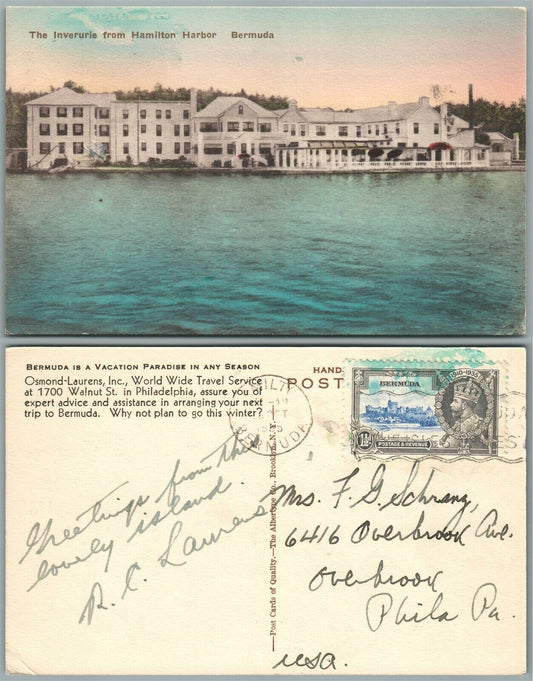 The Inverurie from Hamilton Harbor Bermuda
BERMUDA IS A VACATION PARADISE IN ANY SEASON
Osmond-Laurens, Inc., World Wide Travel Service
at 1700 Walnut St. in Philadelphia, assure you of
expert advice and assistance in arranging your next
trip to Bermuda. Why not plan to go this winter?
HAND
POST
BERMUDA
1910-1935
1½D
POSTAGE & REVENUE
Greetings from this
lovely island.
R. C. Laurens
Post Cards of Quality.—The Albertype Co., Brooklyn, N. Y.
Mrs. F. G. Schranz,
6416 Overbrook Ave.
Overbrook
Phila Pa.
USA.